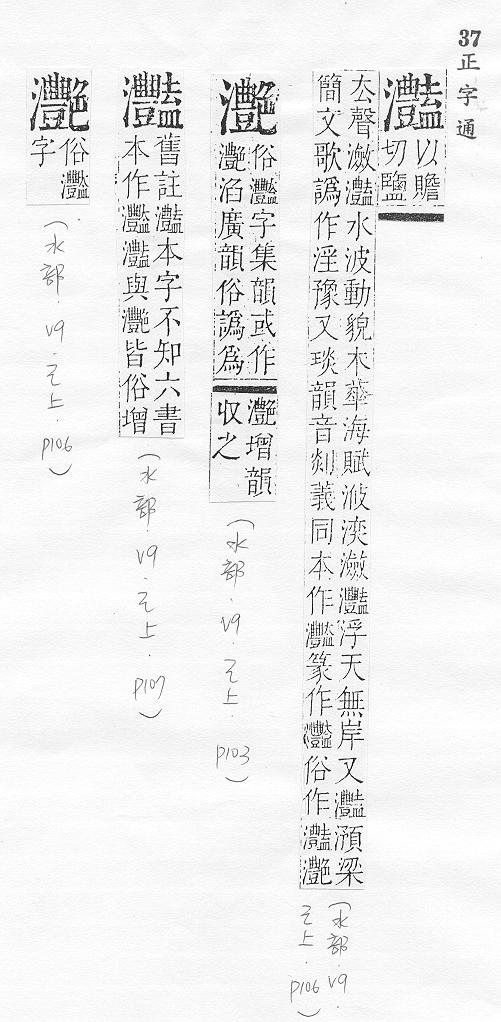 37
正字通
灩
以贍
切鹽
厺聲瀲灩水波動貌木華海賦浟湙瀲灩浮天無岸又灩澦梁
簡文歌譌作淫豫又琰韻音剡義同本作灩篆作灩俗作灩灔
(水部.V9.
巳上.P106)
灔
俗灩字集韻或作
灔滔廣韻俗譌爲
灔增韻
収之
(水部.V9.巳上.P103)
灩
舊註灩本字不知六書
本作灩灩與灔皆俗增
(水部.V9.巳上.P107)
灔
俗灩
字
(水部.V9.巳上.P106)